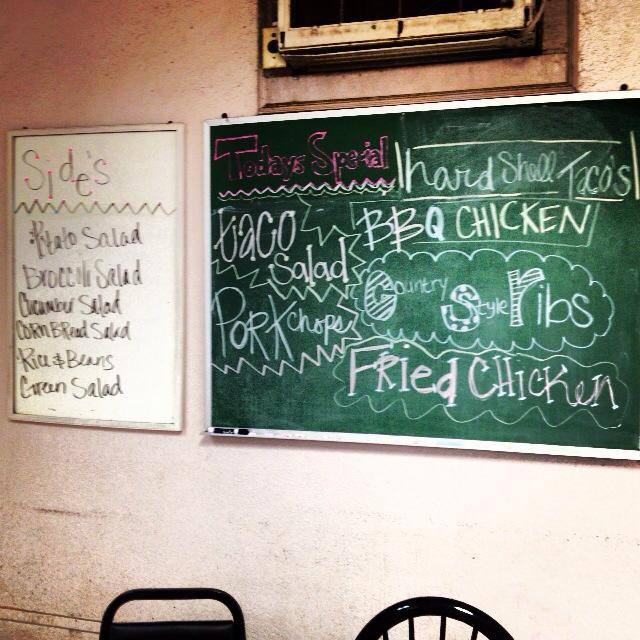 Side's
Potato Salad
Broccili Salad
Cucumber Salad
Corn Bread Salad
Rice & Beans
Green Salad
Todays Special
hard Shell Taco's
taco
Salad
BBQ CHICKEN
Country Style ribs
PORK chops
FRied CHIcken